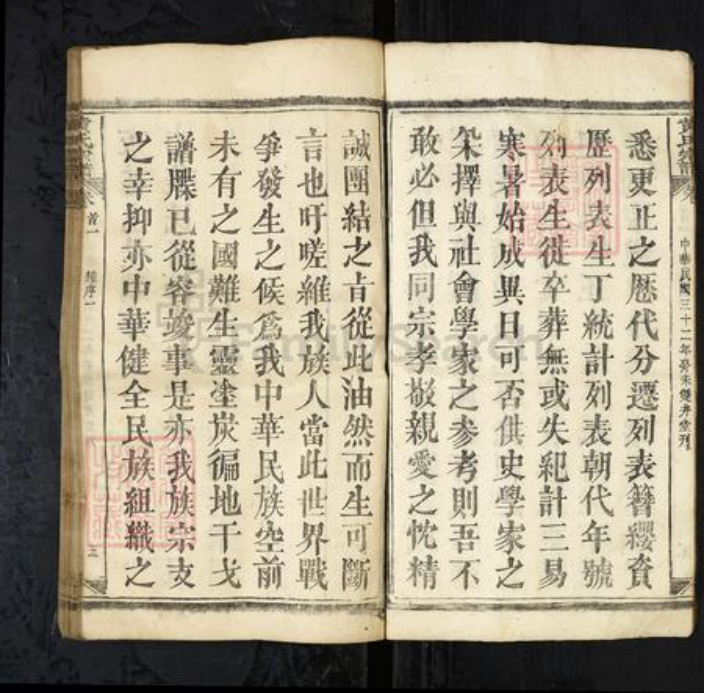 中華民國三十二年癸未雙井堂刊
悉更正之歷代分遷列表簪纓賫
歷列表生丁統計列表朝代年號
列表生徙卒葬無或失紀計三易
寒暑始成異日可否供史學家之
采擇與社會學家之參考則吾不
敢必但我同宗孝敬親愛之忱精
誠團結之旨從此油然而生可斷
言也吁嗟維我族人當此世界戰
爭發生之候爲我中華民族空前
未有之國難生靈塗炭徧地干戈
譜牒已從容竣事是亦我族宗支
之幸抑亦中華健全民族組織之
黃氏宗譜
卷首一
序一
三
FamilySearch